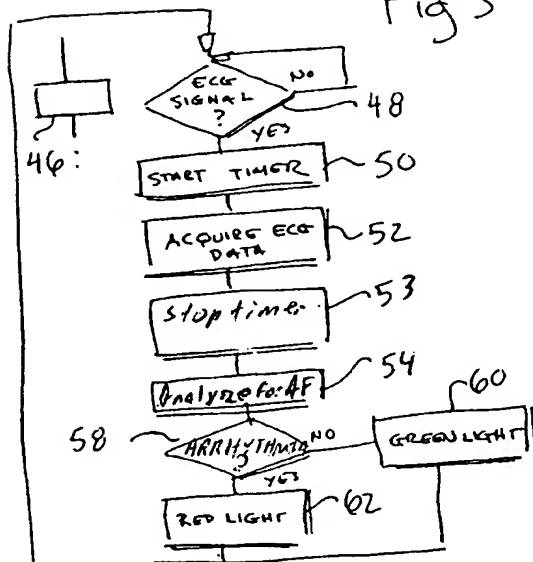 Fig 5
ECG
SIGNAL
?
NO
48
YES
46:
START TIMER
50
ACQUIRE ECG
DATA
52
Stop timer
53
Analyze for AF
54
58
ARRHYTHMIA
?
NO
60
GREEN LIGHT
YES
RED LIGHT
62